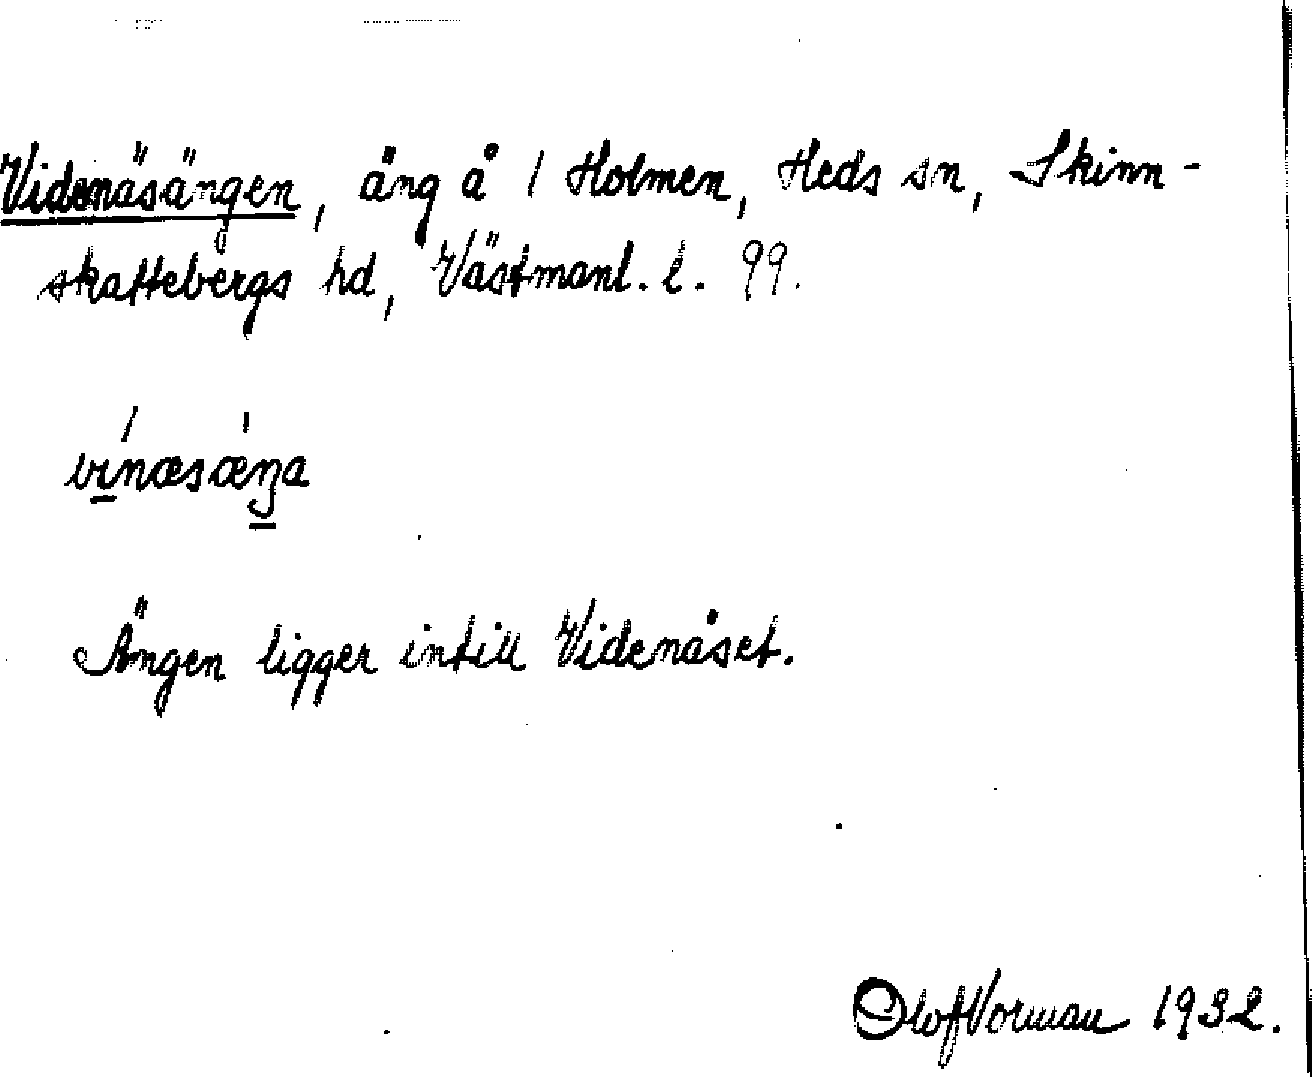 Videnäsängen, äng å 1 Holmen, Heds sn, Skinn-
skattebergs hd, Västmanl. l. 99.
vínæsæ̀ŋa
Ängen ligger intill Videnäset.
Olof Vorman 1932.